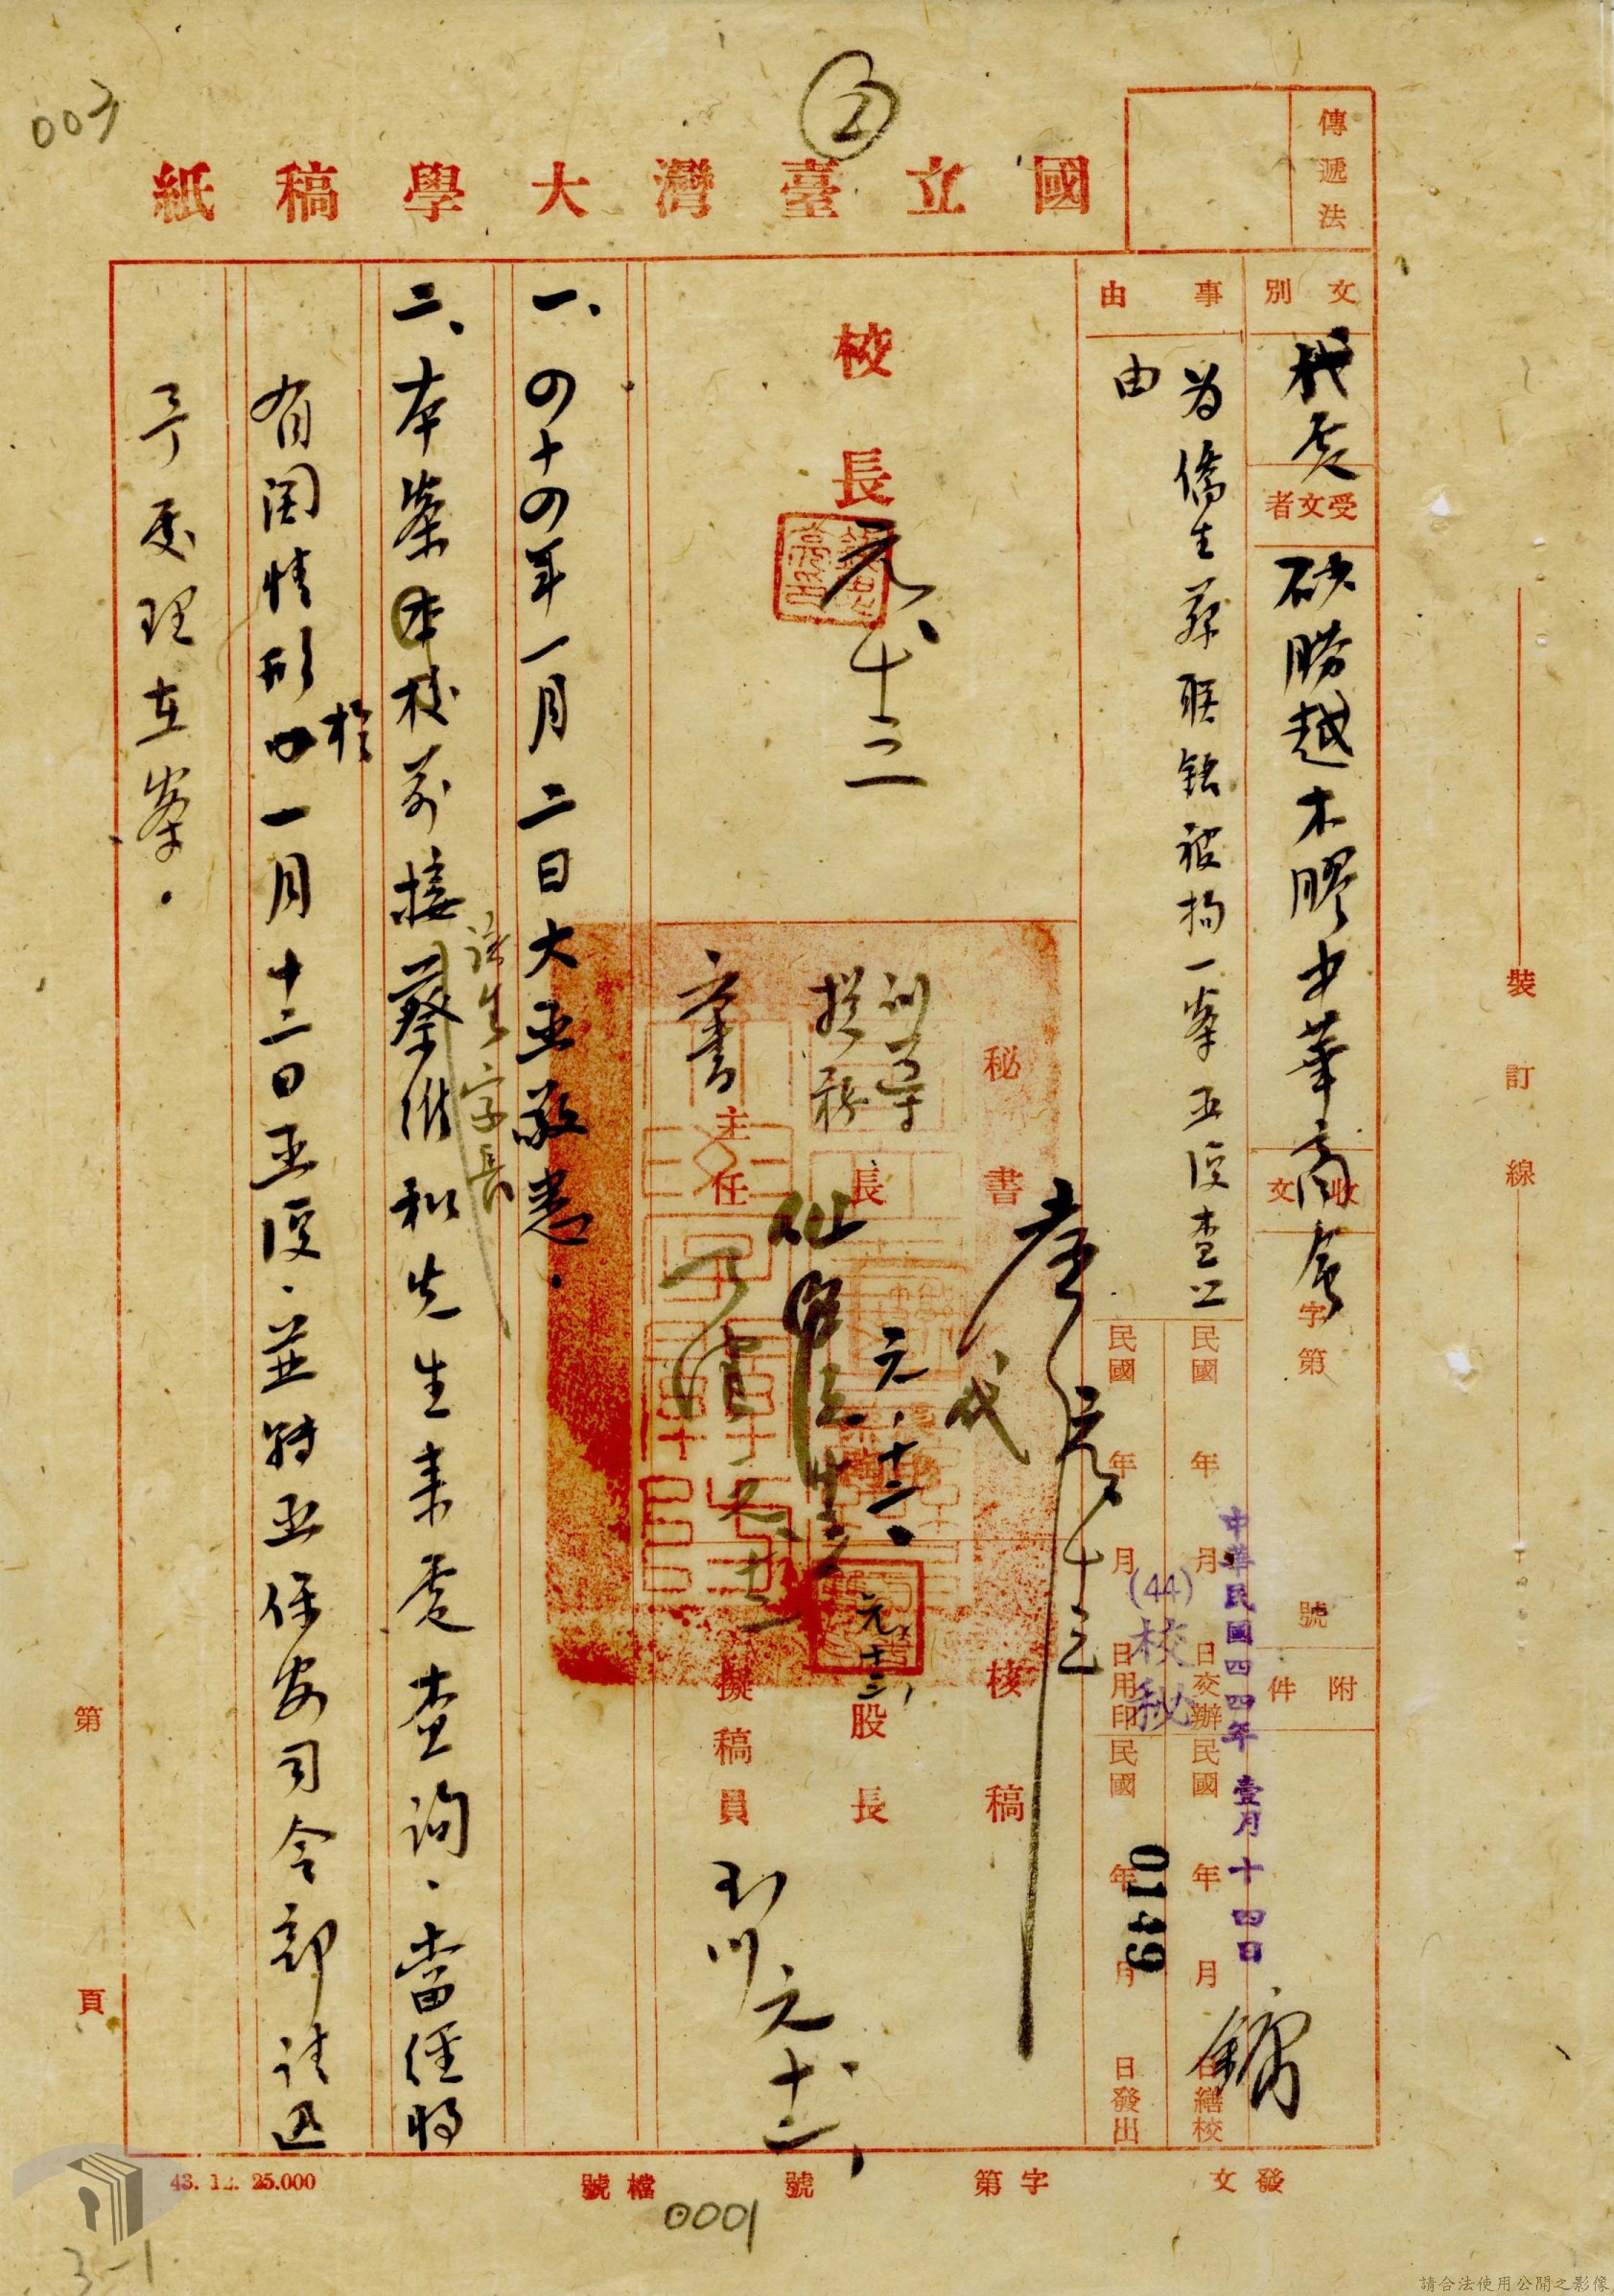 003
2
國立臺灣大學稿紙
傳遞法
文別
代電
受文者
砂朥越木膠中華商會
收文
字第
號
附件
事由
為僑生蔡聯銘被拘一案函復查照由
民國 年 月 日交辦
民國 年 月 日繕校
民國 年 月 日用印
民國 年 月 日發出
中華民國四四年壹月十四日
(44)校秘
0149
校長
元、十三
秘書
代
元、十三
訓導
總務
長
元、十二、
文書
主任
核稿
股長
元、十二、
擬稿員
元、十二、
一、四十四年一月二日大函敬悉.
二、本案本校前接該生家長蔡
和先生來電查詢.當經將
有關情形於一月十二日函復.並轉函保安司令部請迅
予處理在案.
裝訂線
第
頁
43. 12. 25.000
檔號
0001
發文
字第
號
3-1
請合法使用公開之影像